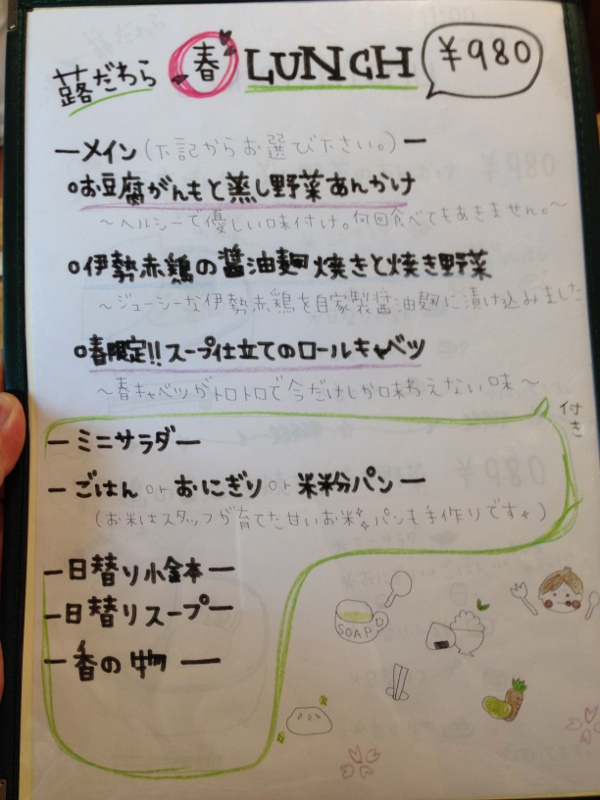 蕗だわら 春 LUNCH ¥980
ーメイン(下記からお選び下さい。)ー
○お豆腐がんもと蒸し野菜あんかけ
~ヘルシーで優しい味付け。何回食べてもあきません。~
○伊勢赤鶏の醤油麹焼きと焼き野菜
~ジューシーな伊勢赤鶏を自家製醤油麹に漬け込みました
○春限定!!スープ仕立てのロールキャベツ
~春キャベツがトロトロで今だけしか味わえない味~
付き
ーミニサラダー
ーごはん or おにぎり or 米粉パンー
(お米はスタッフが育てた甘いお米 パンも手作りです)
ー日替り小鉢本ー
ー日替りスープー
ー香の物ー
SOAP